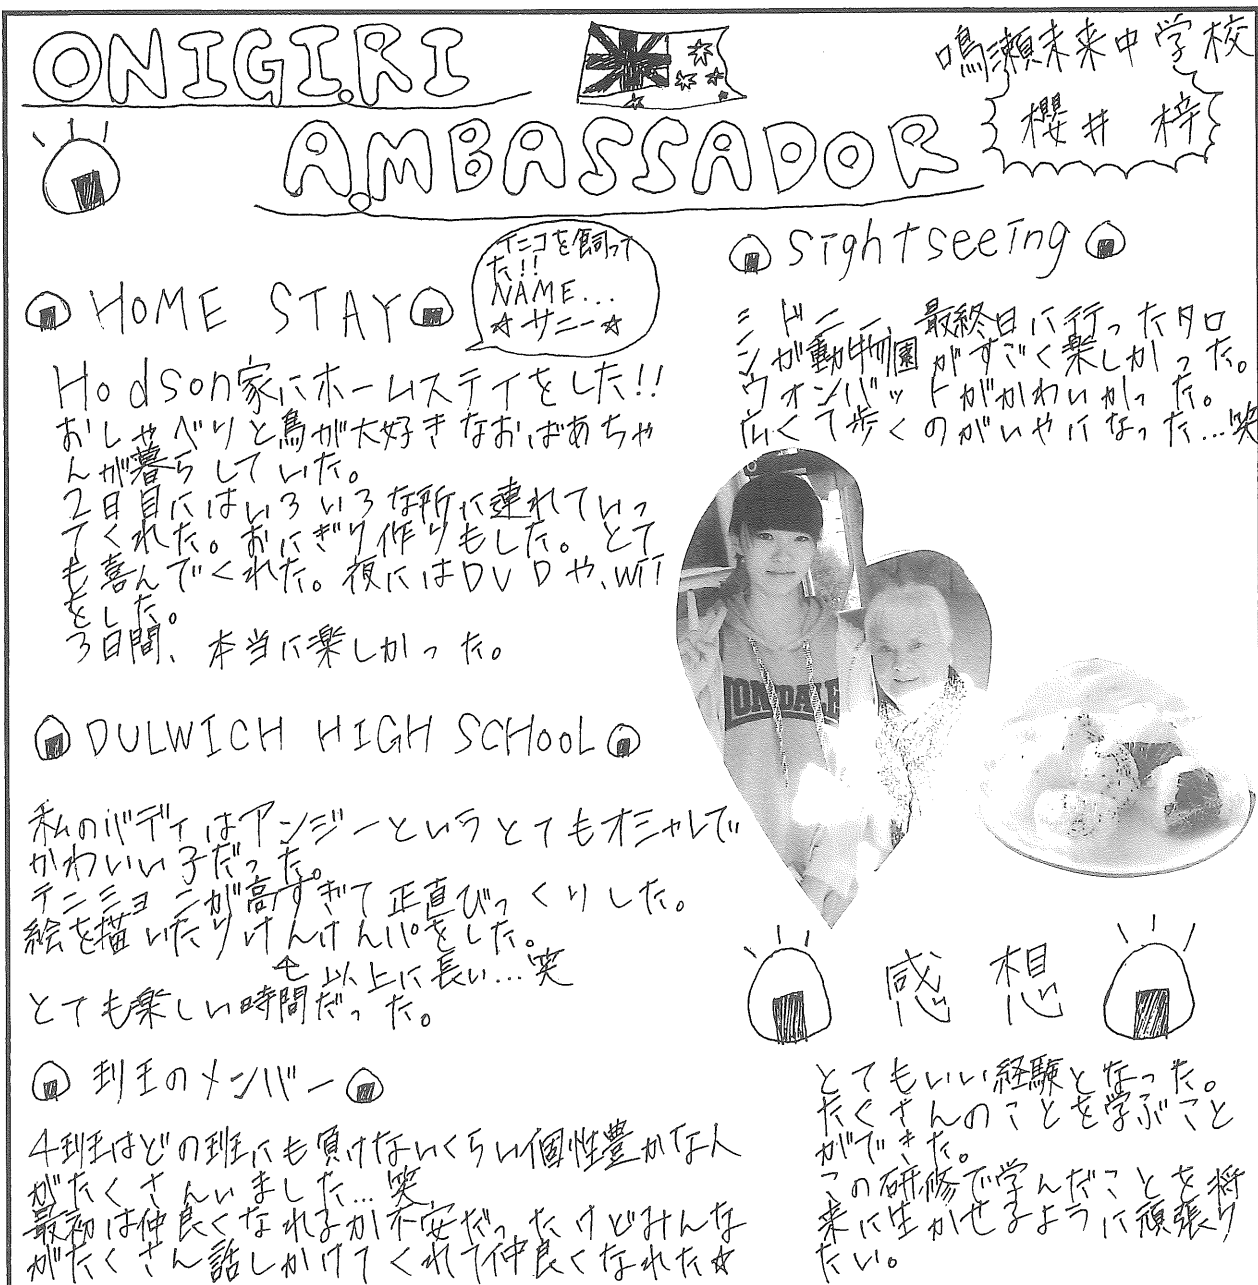 ONIGIRI
AMBASSADOR
鳴瀬未来中学校
櫻井 梓
HOME STAY
インコを飼って
た!!
NAME...
☆サニー☆
Hodson家にホームステイをした!!
おしゃべりと鳥が大好きなおばあちゃ
んが暮らしていた。
2日目にはいろいろな所に連れていっ
てくれた。おにぎり作りもした。とて
も喜んでくれた。夜にはDVDや、wii
をした。
3日間、本当に楽しかった。
DULWICH HIGH SCHOOL
私のバディはアンジーというとてもオシャレで
かわいい子だった。
テンションが高すぎて正直びっくりした。
絵を描いたりけんけんパをした。
以上に長い...笑
とても楽しい時間だった。
班のメンバー
4班はどの班にも負けないくらい個性豊かな人
がたくさんいました...笑
最初は仲良くなれるか不安だったけどみんな
がたくさん話しかけてくれて仲良くなれた☆
sightseeing
シドニー、最終日に行ったタロ
ンガ動物園がすごく楽しかった。
ウォンバットがかわいかった。
広くて歩くのがいやになった...笑
LONSDALE
感想
とてもいい経験となった。
たくさんのことを学ぶこと
ができた。
この研修で学んだことを将
来に生かせるように頑張り
たい。